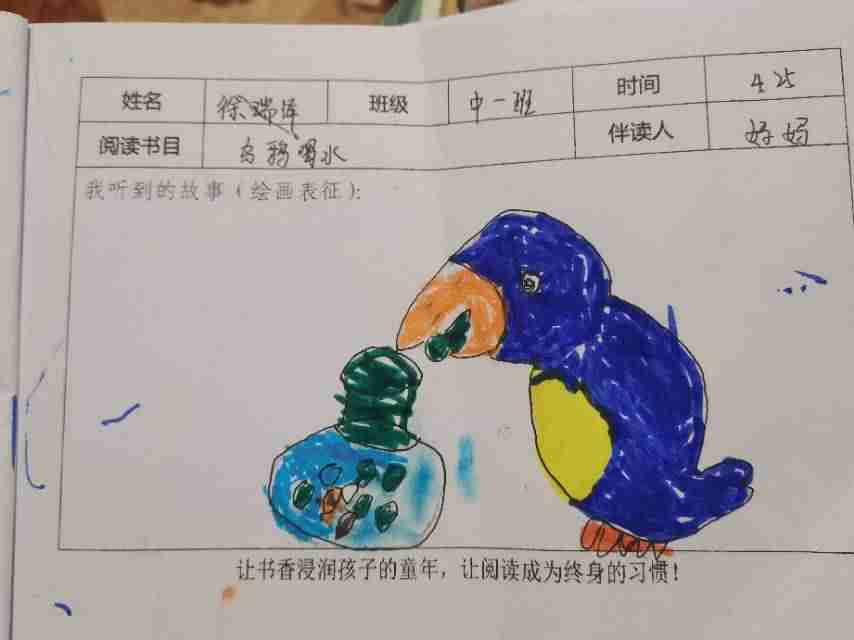 姓名 徐瑞泽 班级 中一班 时间 4.25
阅读书目 乌鸦喝水 伴读人 妈妈
我听到的故事（绘画表征）：
让书香浸润孩子的童年，让阅读成为终身的习惯！